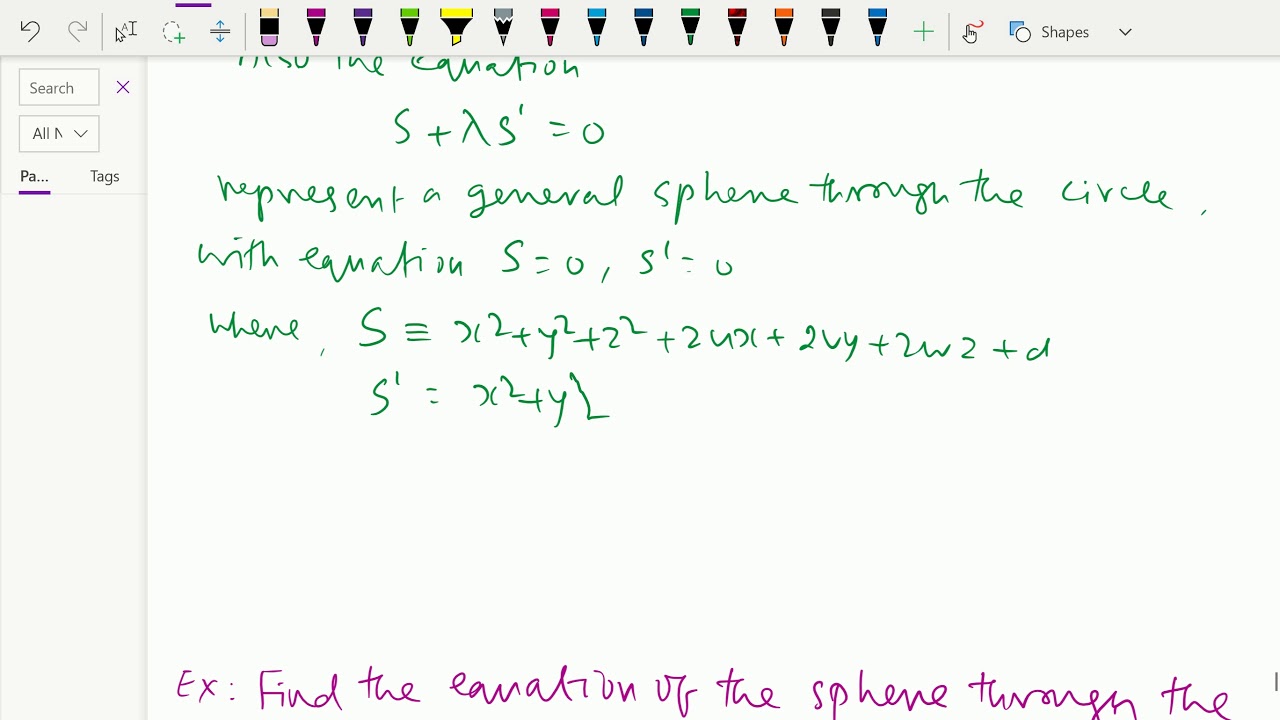 Shapes
Search
All N
Pa...
Tags
Also the Equation
S + λS' = 0
represent a general sphere through the circle,
with equation S = 0, S' = 0
where, S ≡ x²+y²+z²+2ux+2vy+2wz+d
S' = x²+y²
Ex: Find the equation of the sphere through the